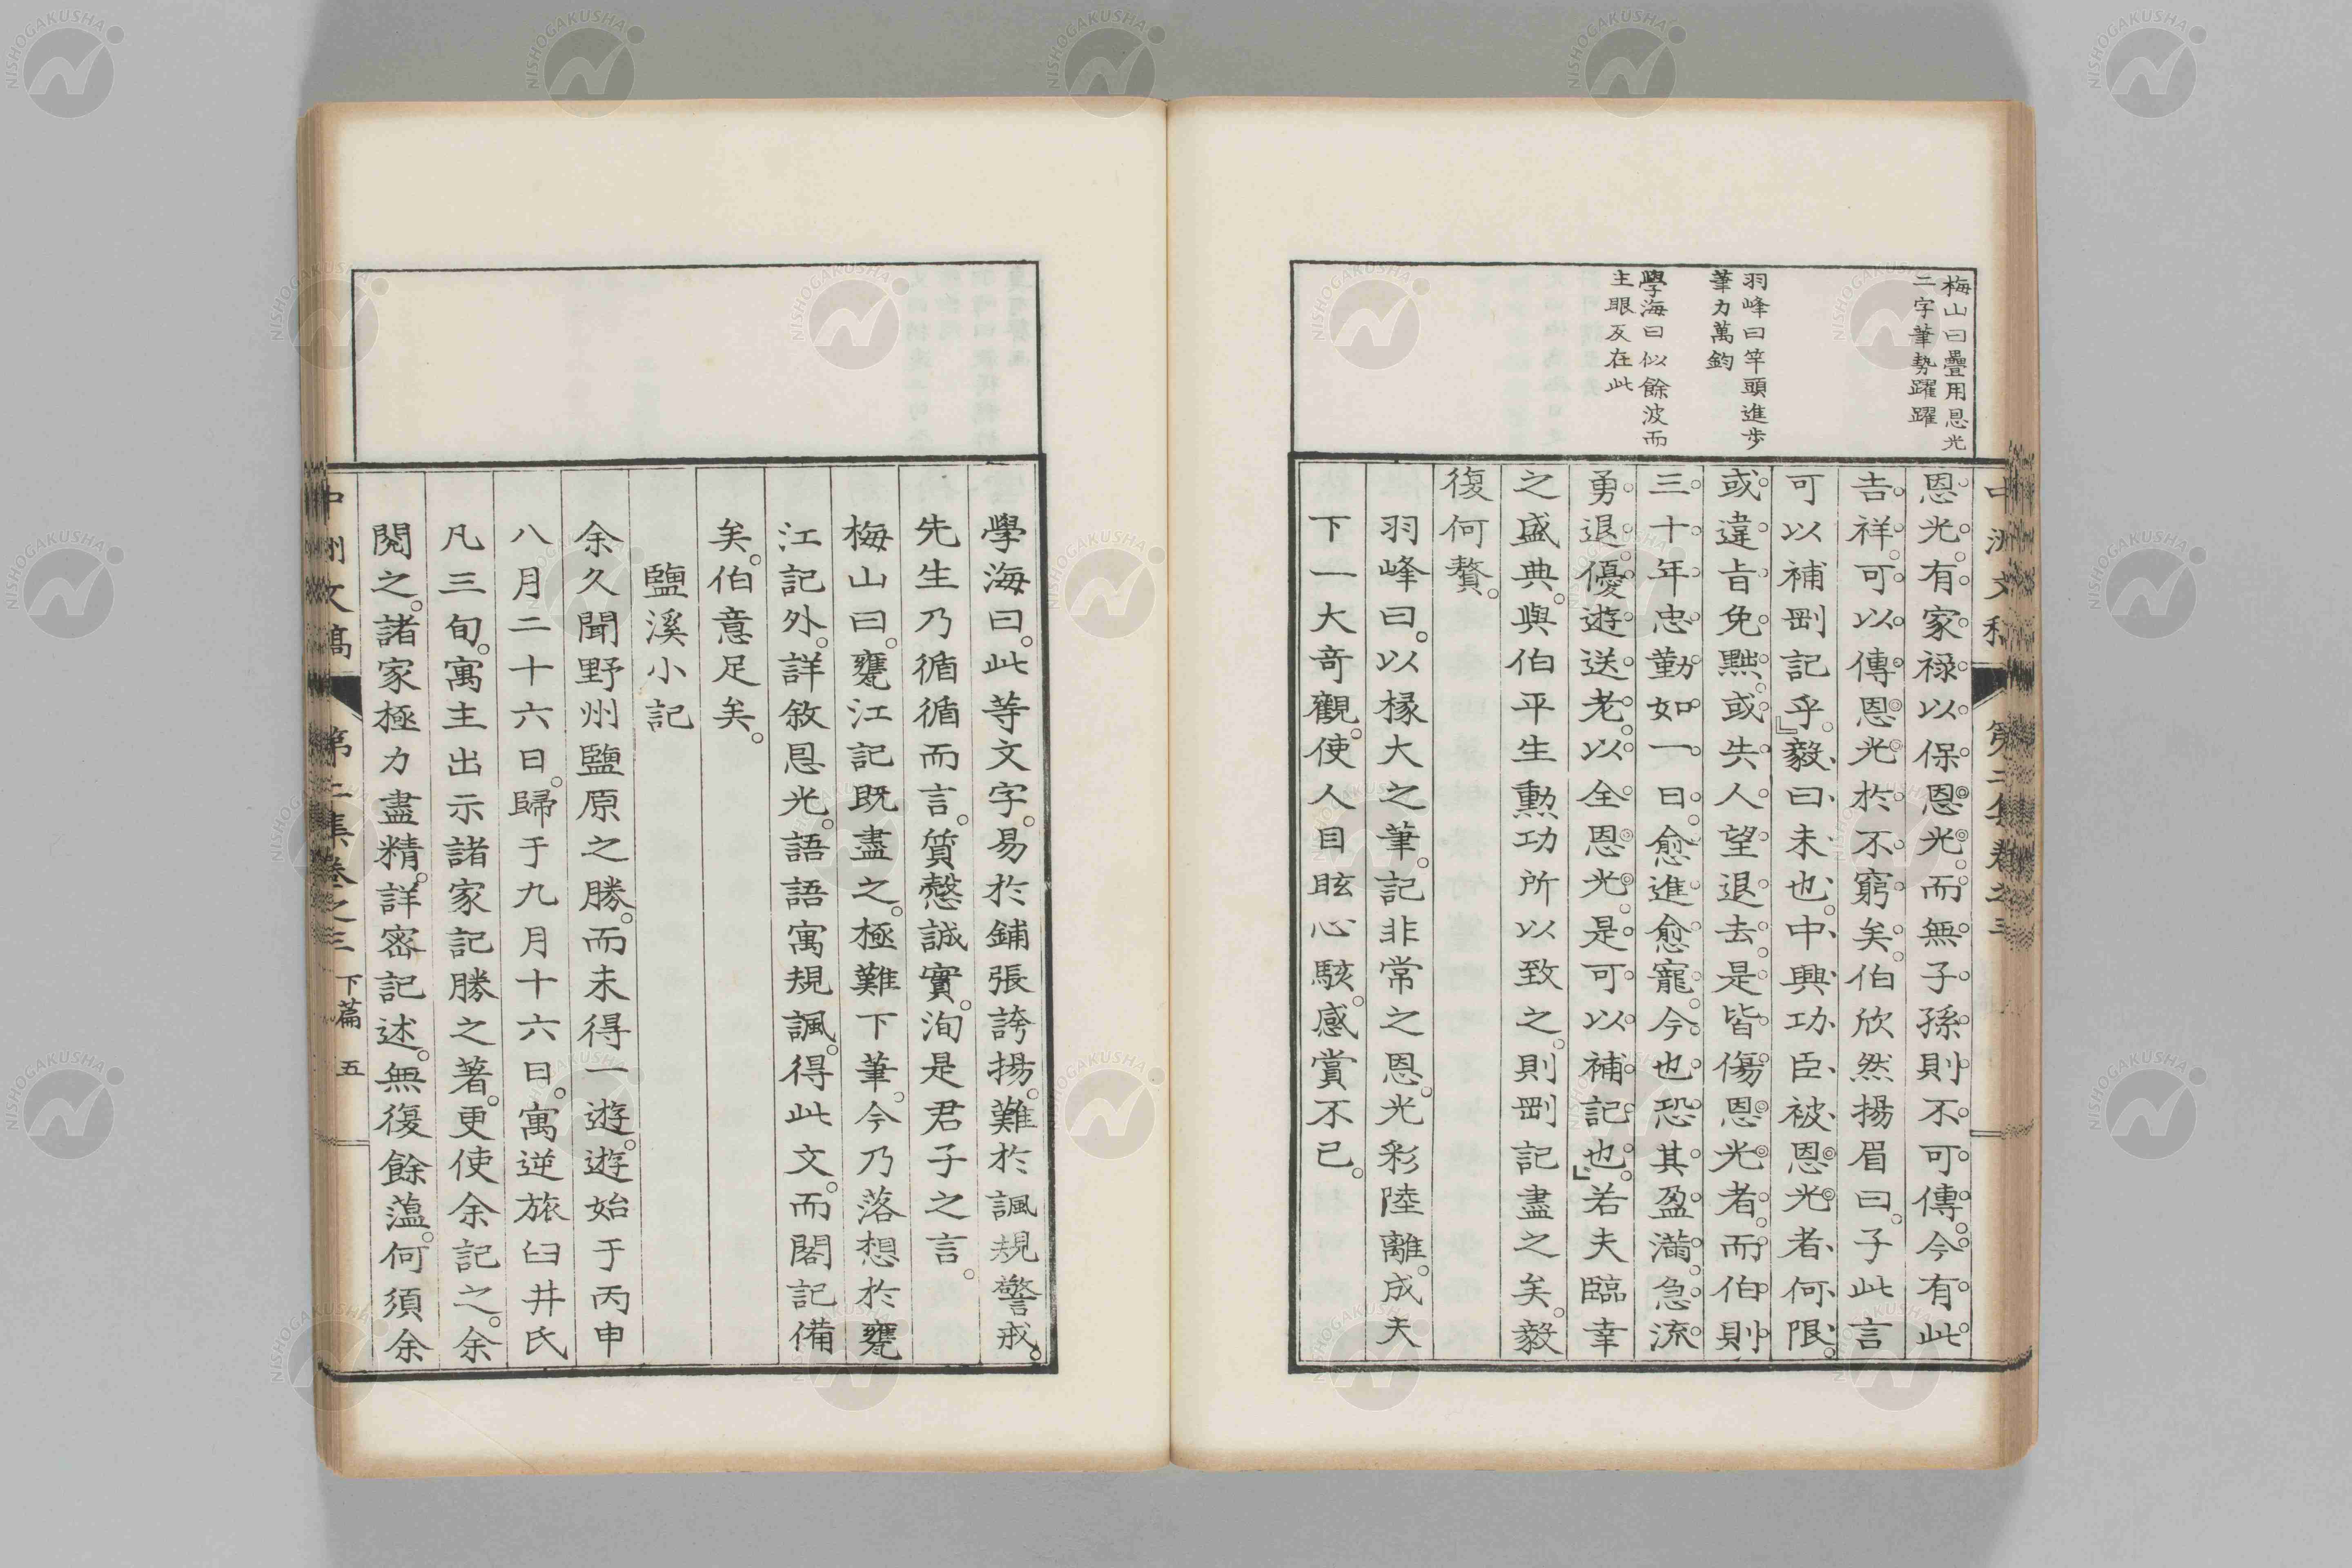 梅山曰疊用恩光
二字筆勢躍躍
羽峰曰竿頭進步
筆力萬鈞
學海曰似餘波而
主眼反在此
恩光。有家祿以保恩光。而無子孫則不可傳。今有此
吉祥。可以傳恩光於不窮矣。伯欣然揚眉曰。子此言
可以補劀記乎。』毅曰未也。中興功臣被恩光者何限。
或違旨免黜。或失人望退去。是皆傷恩光者。而伯則
三十年忠勤如一日。愈進愈寵。今也恐其盈滿。急流
勇退。優遊送老。以全恩光。是可以補記也。』若夫臨幸
之盛典。與伯平生勳功所以致之。則劀記盡之矣。毅
復何贅。
羽峰曰。以椽大之筆。記非常之恩。光彩陸離。成夫
下一大奇觀。使人目眩心駭。感賞不已。
學海曰。此等文字。易於鋪張誇揚。難於諷規警戒。
先生乃循循而言。質愨誠實。洵是君子之言。
梅山曰。甕江記既盡之。極難下筆。今乃落想於甕
江記外。詳敘恩光。語語寓規諷。得此文。而閣記備
矣。伯意足矣。
鹽溪小記
余久聞野州鹽原之勝。而未得一遊。遊始于丙申
八月二十六日。歸于九月十六日。寓逆旅臼井氏
凡三旬。寓主出示諸家記勝之著。更使余記之。余
閱之。諸家極力盡精。詳密記述。無復餘薀。何須余
中洲文稿 第二集卷之三 下篇 五